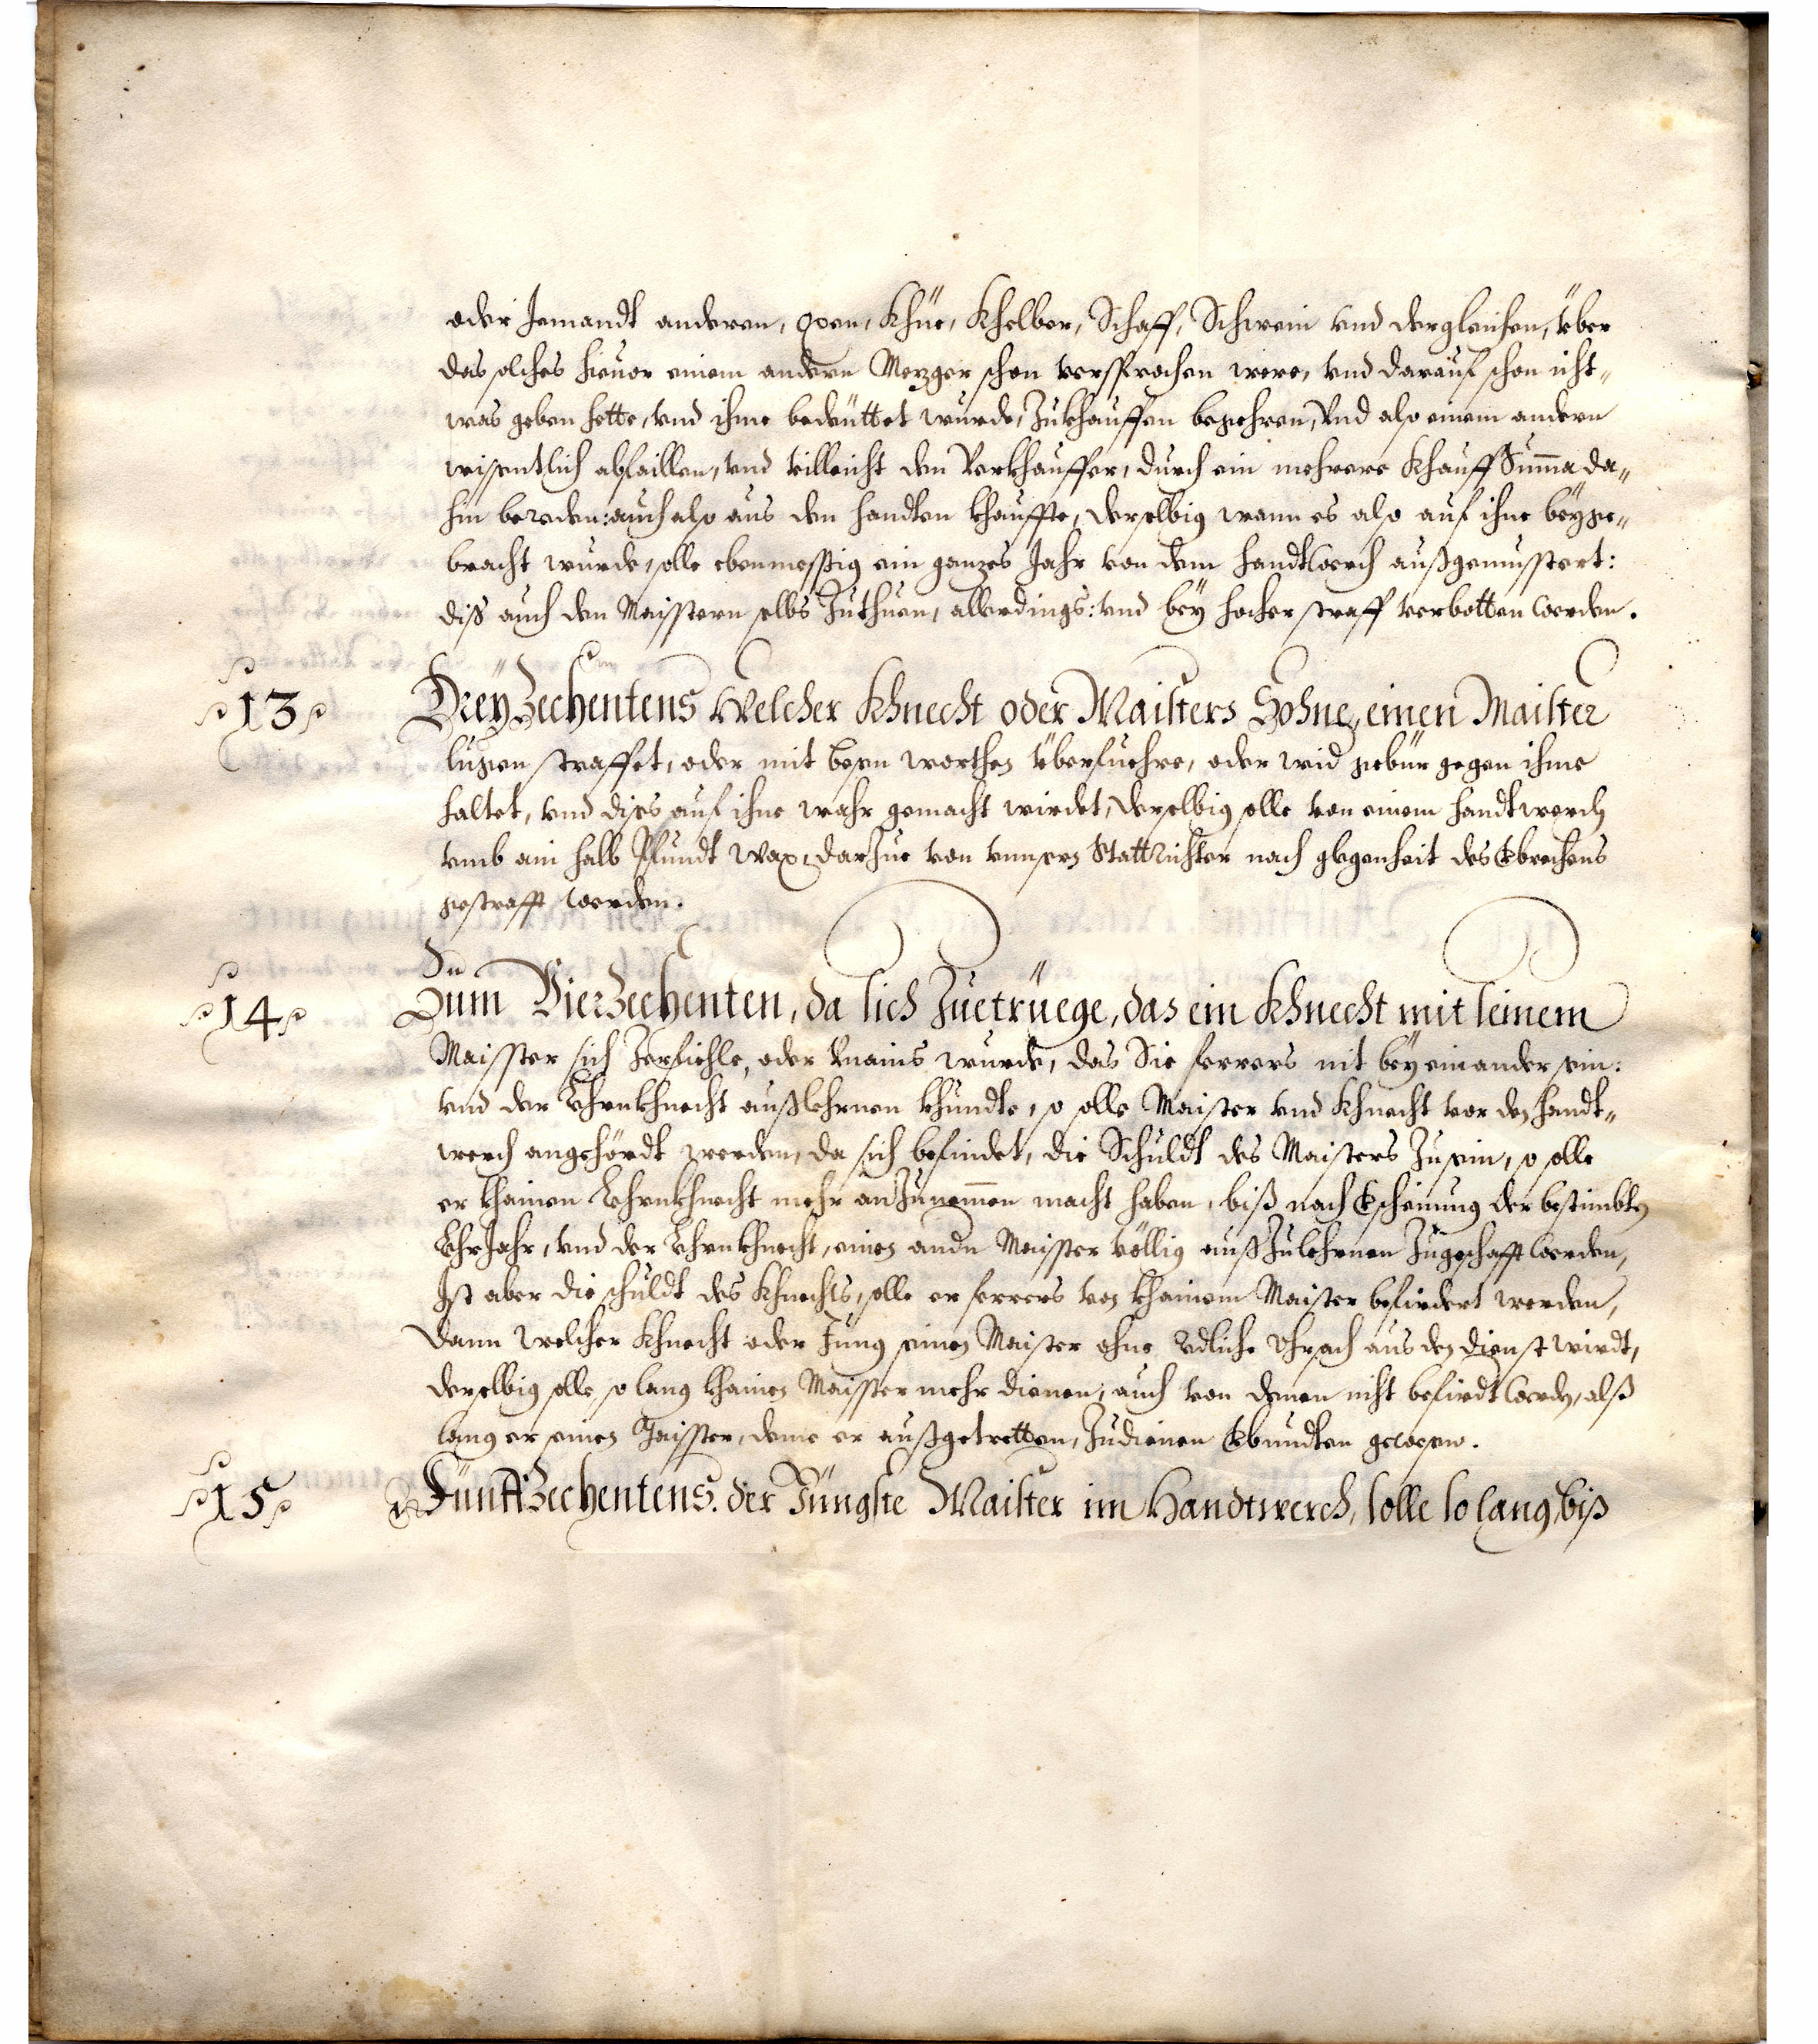 oder Jemandt anderen, Oxen, Khüe, Khelber, Schaff, Schwein vnd dergleichen, über
das solches hieuor einem andern Mezger schon versprochen were, vnd darauf schon icht„
was geben hette, vnd ihme bedeuttet wurde, Zukhauffen begehren, Vnd also einem andern
wissentlich abfaillen, vnd villeicht den Verkhauffer, durch ein mehrere KhauffSumma da„
hin bereden: auch also aus den handten khauffte, derselbig wann es also auf ihne beyge„
bracht wurde, solle ebenmessig ein ganzes Jahr von dem handtwerch außgemusstert:
diß auch den Maisstern selbs Zuthuen, allerdings: vnd bey hocher straff verbotten werden.
13 DreyZechentens Welcher Khnecht oder Maisters Sohne, einen Maister
lugen straffet, oder mit besen worthen überfuehre, oder wid gebür gegen ihme
haltet, vnd dises auf ihne wahr gemacht wirdet, derselbig solle von einem handtwerch
vmb ain halb Pfundt Wax, darZue von vnnsern Stattrichter nach glegenheit des Vbrechens
gestrafft werden.
14 Zum VierZechenten, da sich Zuetrüege, das ein Khnecht mit seinem
Maisster sich Zerfiehle, oder Vnains wurde, das Sie ferrers nit bey einander sein:
vnd der Lehrnkhnecht außlehrnen khundte, so solle Maister vnd Khnecht vor den handt„
werch angehördt werden, da sich befindet, die Schuldt des Maisters Zusein, so solle
er khainen Lehrnkhnecht mehr anZunemmen macht haben, biß nach Erscheinung der bestimbten
LehrJahr, vnd der Lehrnkhnecht, einen andn Maisster völlig außZulehrnen Zugeschafft werden,
Ist aber die schuldt des Khnechts, solle er ferrers von khainem Maister befirdert werden,
dann welcher Khnecht oder Jung seinen Maister ohne redliche Vhrsach aus den dienst wirdt,
derselbig solle so lang khainen Maisster mehr dienen, auch von denen nicht befirdt werden, alß
lang er seinen Maisster, deme er außgetretten, Zudienen Vbundten gewesen.
15 FünffZechentens. der Jüngste Maister im Handtwerch, solle so lang, biß